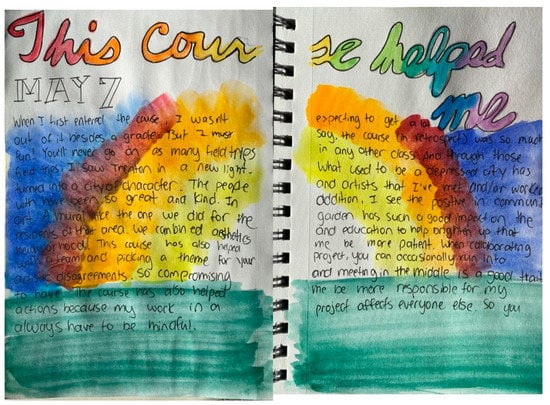 This course helped
me
MAY 7
When I first entered the course, I wasn't expecting to get a
out of it besides a grade. But I must say, the course (in retrospect) was so much
fun! You'll never go on as many field trips in any other class and through those
field trips I saw Trenton in a new light. What used to be a depressed city has
turned into a city of character. The people and artists that I've met and/or worked
have been so great and kind. In addition, I see the positive in communit
art. A mural like the one we did for the garden has such a good impact on the
residents of that area. We combined aesthetics and education to help brighten up that
neighborhood. This course has also helped me be more patient. When collaborating
a team and picking a theme for your project, you can occasionally run into
artistic disagreements, so compromising and meeting in the middle is a good trait
to have. This course has also helped me be more responsible for my
actions because my work in a project affects everyone else so you
always have to be mindful.